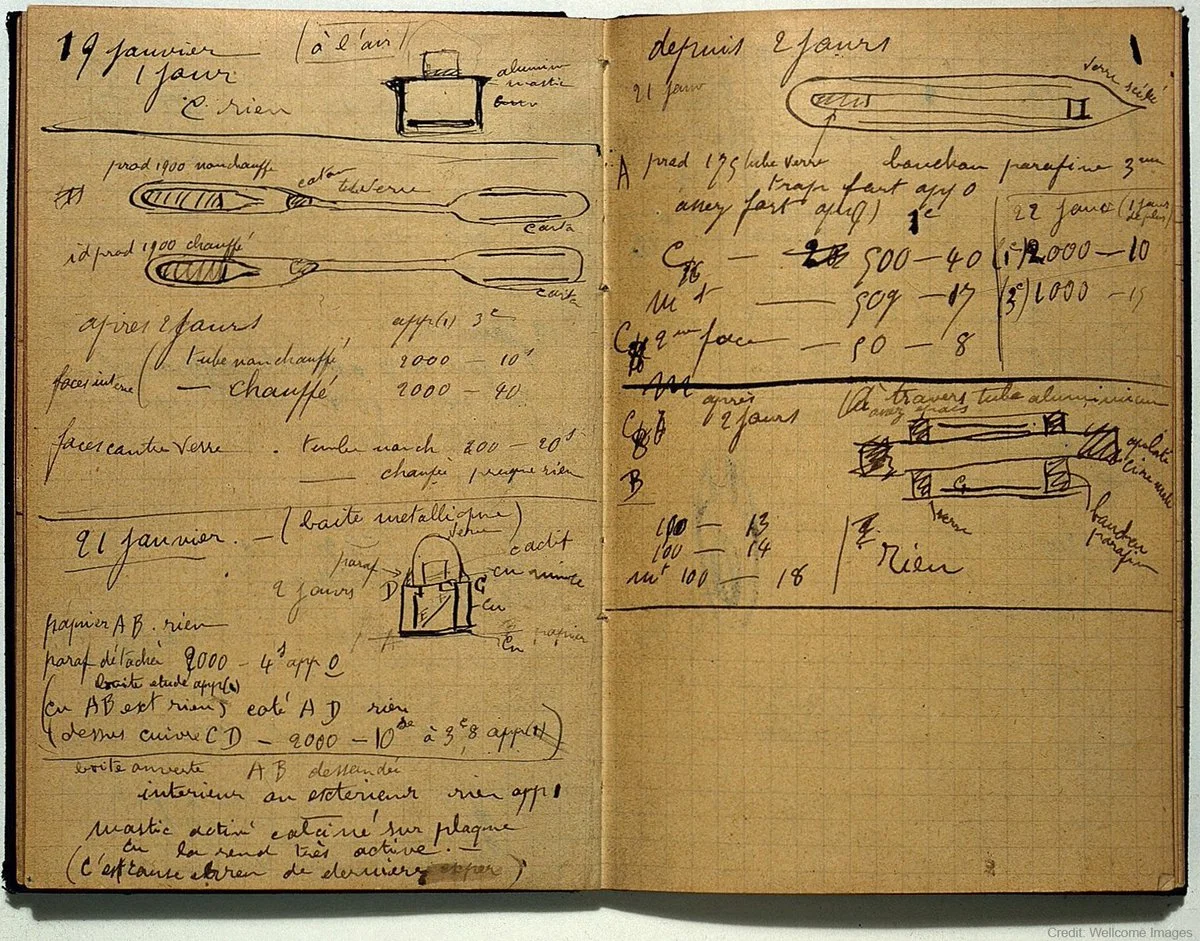 19 janvier (à l'air)
1 jour
C rien
aluminium
mastic
prod 1900 non chauffé
coton tube verre
carta
id prod 1900 chauffé
carta
après 2 jours app(1) 3e
faces interne ( tube non chauffé 2000 – 10s
— chauffé 2000 – 40
faces contre verre . tube nonch 200 – 20s
— chauffé presque rien
21 janvier. – (boite metallique)
verre
paraf
2 jours D C
Cu
E F
A B papier
Cu
papier AB. rien
paraf détachée 2000 – 4s app 0
boite etude app(1)
(cu AB ext rien) coté AD rien
(dessus cuivre CD – 2000 – 10 à 3e,8 app(1))
boite ouverte AB dessoudée
interieur ou exterieur rien app 1
mastic activé calciné sur plaque
cu la rend très active. –
(C'est cause de dernière)
depuis 2 jours 1
21 janv verre scellé
A prod 175 tube verre bouchon parafine 3
trop fort app 0
assez fort app(1) 1e
22 janv (1 jour de plus)
C — 500 – 40 (1e) 2000 – 10
m t — 509 – 17 (3e) 1000 – 15
2me face – 50 – 8
m
après
2 jours (à travers tube aluminium
assez épais
B
100 – 13
100 – 14
mt 100 – 18
rien
verre
bouchon
parafin
Credit: Wellcome Images